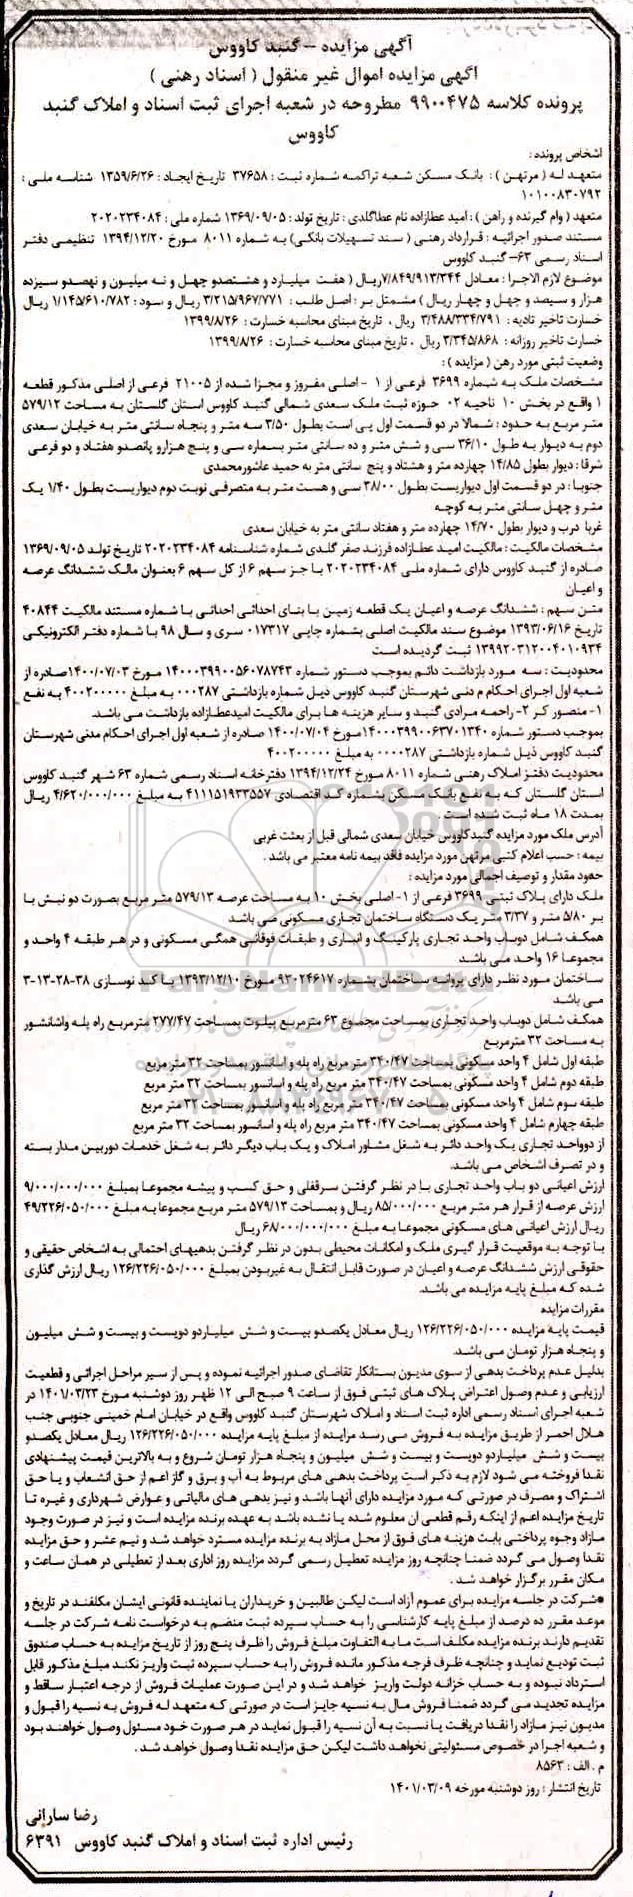 آگهی مزایده - گنبد کاووس
آگهی مزایده اموال غیر منقول ( اسناد رهنی )
پرونده کلاسه ۹۹۰۰۴۷۵ مطروحه در شعبه اجرای ثبت اسناد و املاک گنبد
کاووس
اشخاص پرونده :
متعهد له ( مرتهن ) : بانک مسکن شعبه تراکمه شماره ثبت : ۳۷۶۵۸ تاریخ ایجاد : ۱۳۵۹/۶/۲۶ شناسه ملی :
۱۰۱۰۰۸۳۰۷۹۲
متعهد ( وام گیرنده و راهن ) : امید عطازاده نام عطاگلدی : تاریخ تولد : ۱۳۶۹/۰۹/۰۵ شماره ملی : ۲۰۲۰۲۳۴۰۸۴
مستند صدور اجرائیه : قرارداد رهنی ( سند تسهیلات بانکی) به شماره ۸۰۱۱ مورخ ۱۳۹۴/۱۲/۲۰ تنظیمی دفتر
اسناد رسمی ۶۳- گنبد کاووس
موضوع لازم الاجرا : معادل ۷/۸۴۹/۹۱۳/۳۴۴ریال ( هفت میلیارد و هشتصدو چهل و نه میلیون و نهصدو سیزده
هزار و سیصد و چهل و چهار ریال ) مشتمل بر : اصل طلب : ۳/۲۱۵/۹۶۷/۷۷۱ ریال و سود : ۱/۱۴۵/۶۱۰/۷۸۲ ریال
خسارت تاخیر تادیه : ۳/۴۸۸/۳۳۴/۷۹۱ ریال ، تاریخ مبنای محاسبه خسارت : ۱۳۹۹/۸/۲۶
خسارت تاخیر روزانه : ۳/۳۴۵/۸۶۸ ریال ، تاریخ مبنای محاسبه خسارت : ۱۳۹۹/۸/۲۶
وضعیت ثبتی مورد رهن ( مزایده ) :
مشخصات ملک به شماره ۳۶۹۹ فرعی از ۱ - اصلی مفروز و مجزا شده از ۲۱۰۰۵ فرعی از اصلی مذکور قطعه
۱ واقع در بخش ۱۰ ناحیه ۰۲ حوزه ثبت ملک سعدی شمالی گنبد کاووس استان گلستان به مساحت ۵۷۹/۱۲
متر مربع به حدود : شمالا در دو قسمت اول پی است بطول ۳/۵۰ سه متر و پنجاه سانتی متر به خیابان سعدی
دوم به دیوار به طول ۳۶/۱۰ سی و شش متر و ده سانتی متر بسماره سی و پنج هزارو پانصدو هفتاد و دو فرعی
شرقا : دیوار بطول ۱۴/۸۵ چهارده متر و هشتاد و پنج سانتی متر به حمید عاشورمحمدی
جنوبا : در دو قسمت اول دیواریست بطول ۳۸/۰۰ سی و هست متر به متصرفی نوبت دوم دیواریست بطول ۱/۴۰ یک
متر و چهل سانتی متر به کوچه
غربا درب و دیوار بطول ۱۴/۷۰ چهارده متر و هفتاد سانتی متر به خیابان سعدی
مشخصات مالکیت : مالکیت امید عطازاده فرزند صفر گلدی شماره شناسنامه ۲۰۲۰۲۳۴۰۸۴ تاریخ تولد ۱۳۶۹/۰۹/۰۵
صادره از گنبد کاووس دارای شماره ملی ۲۰۲۰۲۳۴۰۸۴ با جز سهم ۶ از کل سهم ۶ بعنوان مالک ششدانگ عرصه
و اعیان
متن سهم : ششدانگ عرصه و اعیان یک قطعه زمین با بنای احداثی احداثی با شماره مستند مالکیت ۴۰۸۴۴
تاریخ ۱۳۹۳/۰۶/۱۶ موضوع سند مالکیت اصلی بشماره چاپی ۰۱۷۳۱۷ سری و سال ۹۸ با شماره دفتر الکترونیکی
۱۳۹۹۲۰۳۱۲۰۰۴۰۱۰۹۳۴ ثبت گردیده است
محدودیت : سه مورد بازداشت دائم بموجب دستور شماره ۱۴۰۰۰۳۹۹۰۰۵۶۰۷۸۷۴۳ مورخ ۱۴۰۰/۰۷/۰۳صادره از
شعبه اول اجرای احکام م دنی شهرستان گنبد کاووس ذیل شماره بازداشتی ۰۰۰۲۸۷ به مبلغ ۴۰۰۲۰۰۰۰۰ به نفع
۱- منصور کر ۲- راحمه مرادی گنبد و سایر هزینه ها برای مالکیت امیدعطازاده بازداشت می باشد.
بموجب دستور شماره ۱۴۰۰۰۳۹۹۰۰۶۳۷۰۱۳۴۰مورخ ۱۴۰۰/۰۷/۰۴ صادره از شعبه اول اجرای احکام مدنی شهرستان
گنبد کاووس ذیل شماره بازداشتی ۰۰۰۰۲۸۷ به مبلغ ۴۰۰۲۰۰۰۰۰
محدودیت دفتر املاک رهنی شماره ۸۰۱۱ مورخ ۱۳۹۴/۱۲/۲۴ دفترخانه اسناد رسمی شماره ۶۳ شهر گنبد کاووس
استان گلستان که به نفع بانک مسکن بشماره کد اقتصادی ۴۱۱۱۵۱۹۳۳۵۵۷ به مبلغ ۴/۶۲۰/۰۰۰/۰۰۰ ریال
بمدت ۱۸ ماه ثبت شده است .
آدرس ملک مورد مزایده گنبدکاووس خیابان سعدی شمالی قبل از بعثت غربی
بیمه : حسب اعلام کتبی مرتهن مورد مزایده فاقد بیمه نامه معتبر می باشد .
حدود مقدار و توصیف اجمالی مورد مزایده :
ملک دارای پلاک ثبتی ۳۶۹۹ فرعی از ۱- اصلی بخش ۱۰ به مساحت عرصه ۵۷۹/۱۳ متر مربع بصورت دو نبش با
بر ۵/۸۰ متر و ۳/۳۷ متر یک دستگاه ساختمان تجاری مسکونی می باشد
همکف شامل دوباب واحد تجاری پارکینگ و انباری و طبقات فوقانی همگی مسکونی و در هر طبقه ۴ واحد و
مجموعا ۱۶ واحد می باشد
ساختمان مورد نظر دارای پروانه ساختمان بشماره ۹۳۰۲۴۶۱۷ مورخ ۱۳۹۳/۱۲/۱۰ با کد نوسازی ۳۸-۲۸-۱۳-۳
می باشد
همکف شامل دوباب واحد تجاری بمساحت مجموع ۶۳ مترمربع پیلوت بمساحت ۲۷۷/۴۷ مترمربع راه پله واشانشور
به مساحت ۳۲ مترمربع
طبقه اول شامل ۴ واحد مسکونی بمساحت ۳۴۰/۴۷ متر مربع راه پله و آسانسور بمساحت ۳۲ متر مربع
طبقه دوم شامل ۴ واحد مسکونی بمساحت ۳۴۰/۴۷ متر مربع راه پله و آسانسور بمساحت ۳۲ متر مربع
طبقه سوم شامل ۴ واحد مسکونی بمساحت ۳۴۰/۴۷ متر مربع راه پله و آسانسور بمساحت ۳۲ متر مربع
طبقه چهارم شامل ۴ واحد مسکونی بمساحت ۳۴۰/۴۷ متر مربع راه پله و آسانسور بمساحت ۳۲ متر مربع
از دوواحد تجاری یک واحد دائر به شغل مشاور املاک و یک باب دیگر دائر به شغل خدمات دوربین مدار بسته
و در تصرف اشخاص می باشد.
ارزش اعیانی دو باب واحد تجاری با در نظر گرفتن سرقفلی و حق کسب و پیشه مجموعا بمبلغ ۹/۰۰۰/۰۰۰/۰۰۰
ارزش عرصه از قرار هر متر مربع ۸۵/۰۰۰/۰۰۰ ریال و بمساحت ۵۷۹/۱۳ متر مربع مجموعا به مبلغ ۴۹/۲۲۶/۰۵۰/۰۰۰
ریال ارزش اعیانی های مسکونی مجموعا به مبلغ ۶۸/۰۰۰/۰۰۰/۰۰۰ ریال
با توجه به موقعیت قرار گیری ملک و امکانات محیطی بدون در نظر گرفتن بدهیهای احتمالی به اشخاص حقیقی و
حقوقی ارزش ششدانگ عرصه و اعیان در صورت قابل انتقال به غیربودن بمبلغ ۱۲۶/۲۲۶/۰۵۰/۰۰۰ ریال ارزش گذاری
شده که مبلغ پایه مزایده می باشد.
مقررات مزایده
قیمت پایه مزایده ۱۲۶/۲۲۶/۰۵۰/۰۰۰ ریال معادل یکصدو بیست و شش میلیاردو دویست و بیست و شش میلیون
و پنجاه هزار تومان می باشد.
بدلیل عدم پرداخت بدهی از سوی مدیون بستانکار تقاضای صدور اجرائیه نموده و پس از سیر مراحل اجرائی و قطعیت
ارزیابی و عدم وصول اعتراض پلاک های ثبتی فوق از ساعت ۹ صبح الی ۱۲ ظهر روز دوشنبه مورخ ۱۴۰۱/۰۳/۲۳ در
شعبه اجرای اسناد رسمی اداره ثبت اسناد و املاک شهرستان گنبد کاووس واقع در خیابان امام خمینی جنوبی جنب
هلال احمر از طریق مزایده به فروش می رسد مزایده از مبلغ پایه مزایده ۱۲۶/۲۲۶/۰۵۰/۰۰۰ ریال معادل یکصدو
بیست و شش میلیاردو دویست و بیست و شش میلیون و پنجاه هزار تومان شروع و به بالاترین قیمت پیشنهادی
نقدا فروخته می شود لازم به ذکر است پرداخت بدهی های مربوط به آب و برق و گاز اعم از حق انشعاب و یا حق
اشتراک و مصرف در صورتی که مورد مزایده دارای آنها باشد و نیز بدهی های مالیاتی و عوارض شهرداری و غیره تا
تاریخ مزایده اعم از اینکه رقم قطعی ان معلوم شده یا نشده باشد به عهده برنده مزایده است و نیز در صورت وجود
مازاد وجوه پرداختی بابت هزینه های فوق از محل مازاد به برنده مزایده مسترد خواهد شد و نیم عشر و حق مزایده
نقدا وصول می گردد ضمنا چنانچه روز مزایده تعطیل رسمی گردد مزایده روز اداری بعد از تعطیلی در همان ساعت و
مکان مقرر برگزار خواهد شد .
*شرکت در جلسه مزایده برای عموم آزاد است لیکن طالبین و خریداران یا نماینده قانونی ایشان مکلفند در تاریخ و
موعد مقرر ده درصد از مبلغ پایه کارشناسی را به حساب سپرده ثبت منضم به درخواست نامه شرکت در جلسه
تقدیم دارند برنده مزایده مکلف است ما به التفاوت مبلغ فروش را ظرف پنج روز از تاریخ مزایده به حساب صندوق
ثبت تودیع نماید و چنانچه ظرف فرجه مذکور مانده فروش را به حساب سپرده ثبت واریز نکند مبلغ مذکور قابل
استرداد نبوده و به حساب خزانه دولت واریز خواهد شد و در این صورت عملیات فروش از درجه اعتبار ساقط و
مزایده تجدید می گردد ضمنا فروش مال به نسیه جایز است در صورتی که متعهد له فروش به نسیه را قبول و
مدیون نیز مازاد را نقدا دریافت یا نسبت به آن نسیه را قبول نماید در هر صورت خود مسئول وصول خواهند بود
و شعبه اجرا در خصوص مسئولیتی نخواهد داشت لیکن حق مزایده نقدا وصول خواهد شد .
م . الف : ۸۵۶۳
تاریخ انتشار : روز دوشنبه مورخه ۱۴۰۱/۰۳/۰۹
رضا سارانی
رئیس اداره ثبت اسناد و املاک گنبد کاووس ۶۳۹۱
ParsNamadData